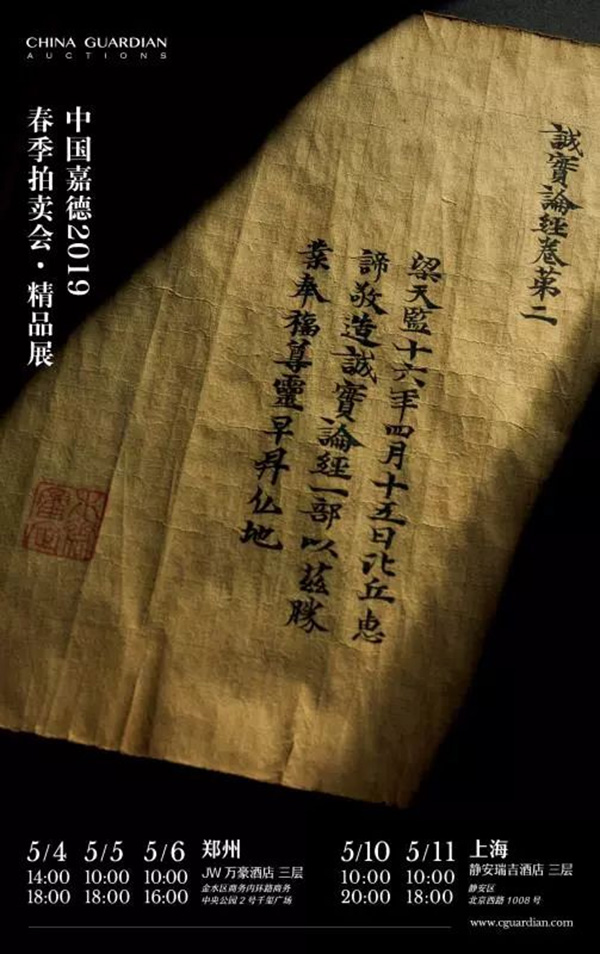 CHINA GUARDIAN
AUCTIONS
中国嘉德2019
春季拍卖会·精品展
誠實論經卷第二
梁天監十六年四月十五日比丘惠
諦敬造誠實論經一部以兹勝
業奉福尊靈早昇仏地
5/4
14:00
18:00
5/5
10:00
18:00
5/6
10:00
16:00
郑州
JW 万豪酒店 三层
金水区商务内环路商务
中央公园 2 号千玺广场
5/10
10:00
20:00
5/11
10:00
18:00
上海
静安瑞吉酒店 三层
静安区
北京西路 1008 号
www.cguardian.com